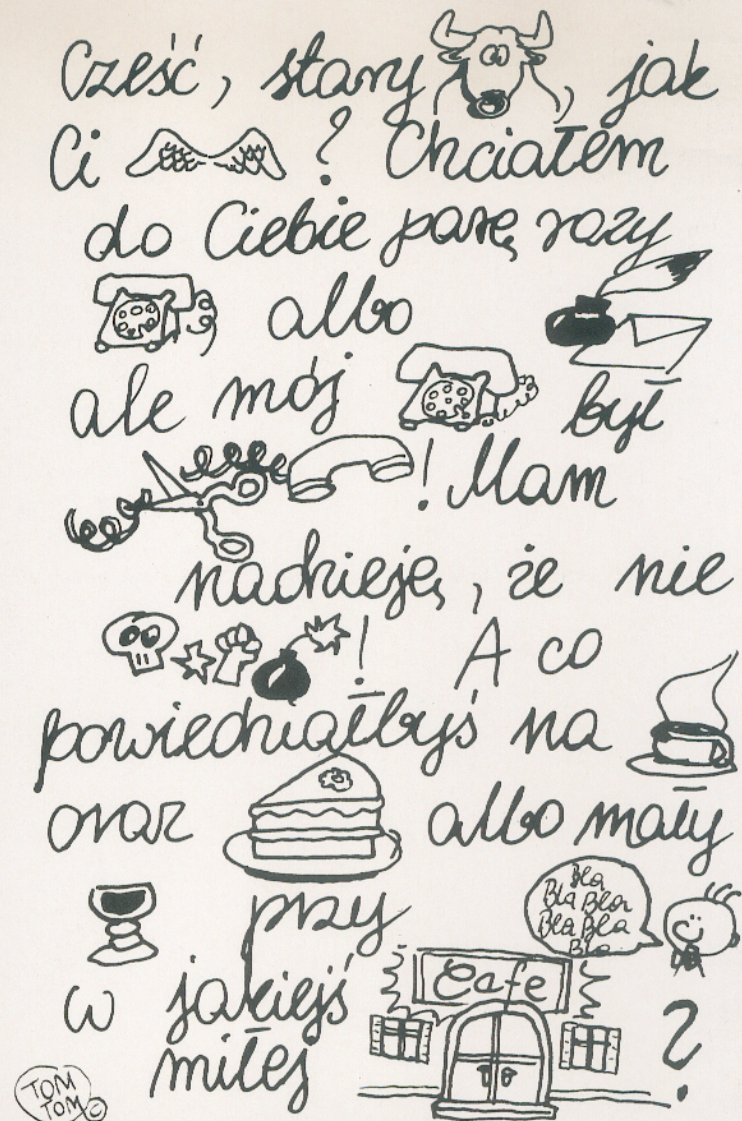 Cześć, stary , jak
Ci ? Chciałem
do Ciebie parę razy
albo
ale mój był
! Mam
nadzieję, że nie
! A co
powiedziałbyś na
oraz albo mały
przy
Bla
Bla Bla
Bla Bla
Bla
w jakiejś
Cafe
miłej ?
TOM
TOM ©